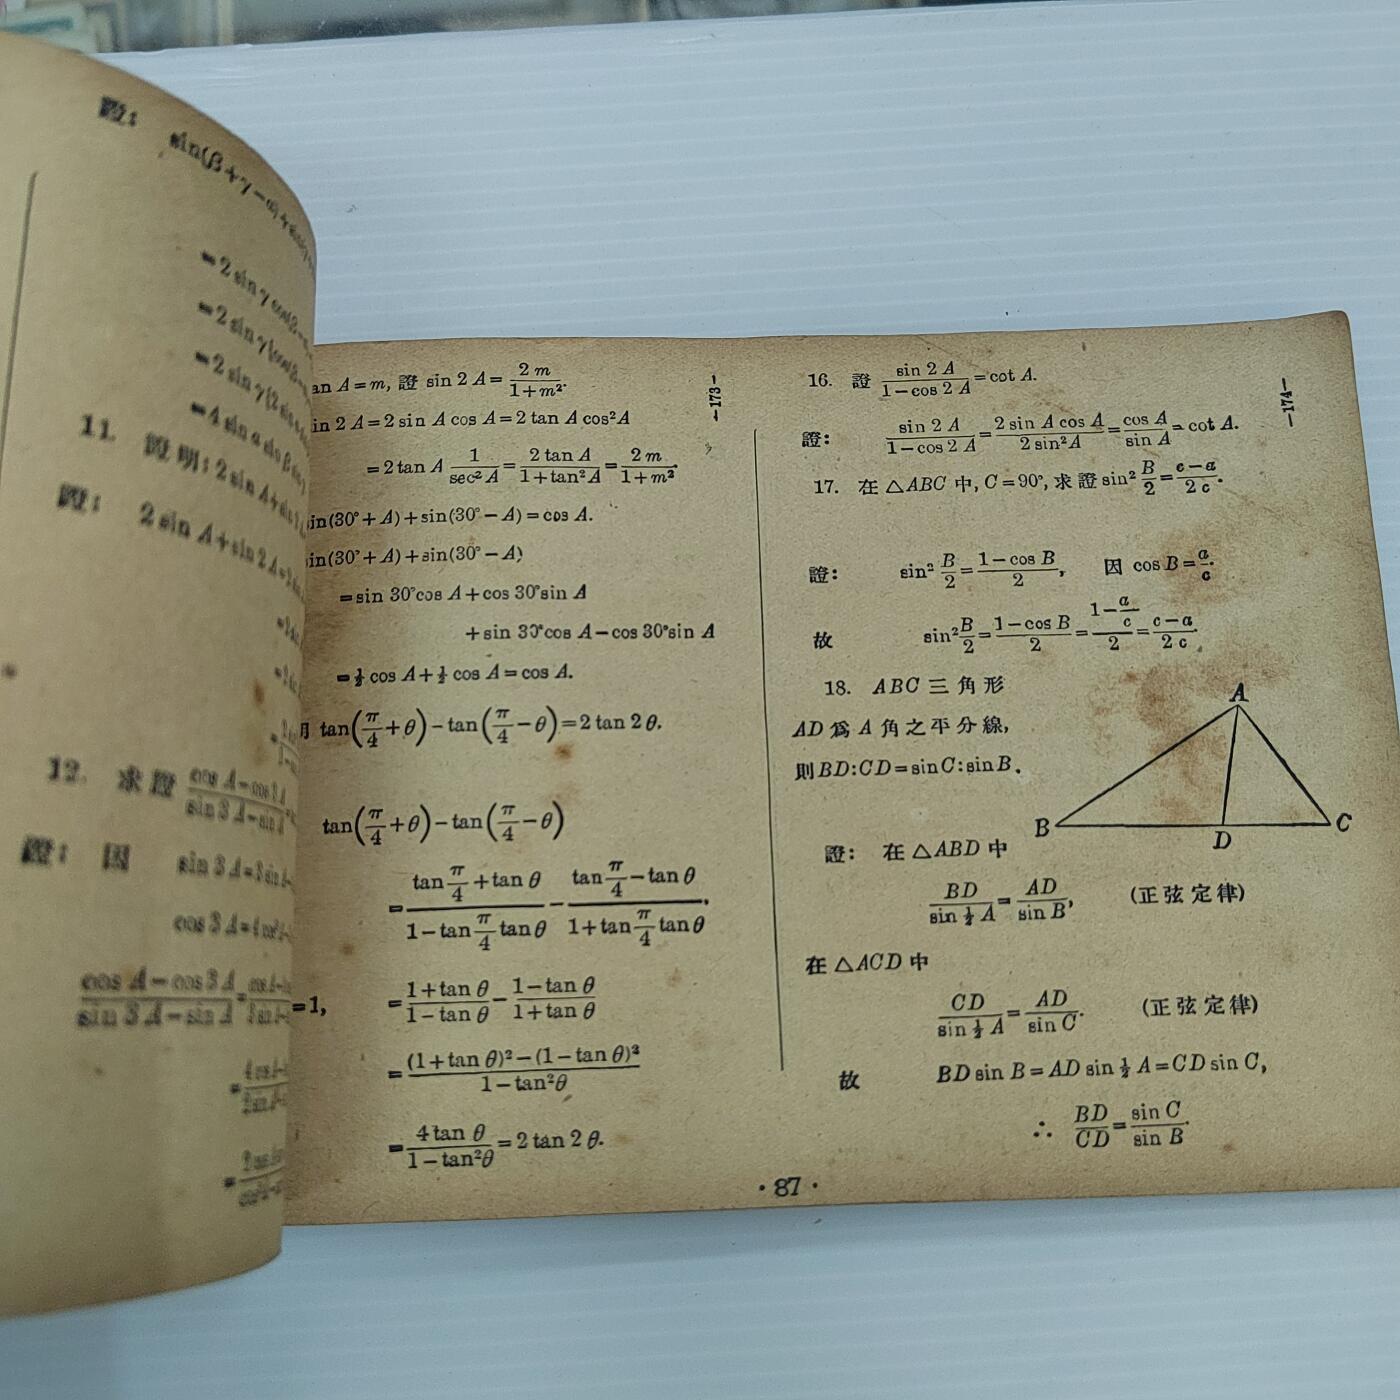 證：
11.
證明：2 sin A+sin
證： 2 sin A+sin 2A
12. 求證 cos A−cos 3A / sin 3A−sin A
證： 因 sin 3A=3 sin
cos 3A=4 cos³
cos A−cos 3A / sin 3A−sin A =
an A=m, 證 sin 2 A= 2 m / 1+m².
in 2 A=2 sin A cos A=2 tan A cos²A
=2 tan A 1 / sec² A = 2 tan A / 1+tan² A = 2 m / 1+m².
in(30°+A)+sin(30°−A)=cos A.
in(30°+A)+sin(30°−A)
=sin 30°cos A+cos 30°sin A
+sin 30°cos A−cos 30°sin A
=½ cos A+½ cos A=cos A.
tan(π/4+θ)−tan(π/4−θ)=2 tan 2 θ.
tan(π/4+θ)−tan(π/4−θ)
= tan π/4+tan θ / 1−tan π/4 tan θ − tan π/4−tan θ / 1+tan π/4 tan θ.
=1, = 1+tan θ / 1−tan θ − 1−tan θ / 1+tan θ
= (1+tan θ)²−(1−tan θ)² / 1−tan²θ
= 4 tan θ / 1−tan²θ =2 tan 2 θ.
—173—
16. 證 sin 2 A / 1−cos 2 A =cot A.
證： sin 2 A / 1−cos 2 A = 2 sin A cos A / 2 sin²A = cos A / sin A =cot A.
17. 在 △ABC 中, C=90°, 求證 sin² B/2 = c−a / 2 c.
證： sin² B/2 = 1−cos B / 2, 因 cos B= a/c.
故 sin² B/2 = 1−cos B / 2 = 1−a/c / 2 = c−a / 2 c.
18. ABC 三角形
AD 爲 A 角之平分線,
則 BD:CD=sin C:sin B.
A
B
D
C
證： 在 △ABD 中
BD / sin ½ A = AD / sin B, (正弦定律)
在 △ACD 中
CD / sin ½ A = AD / sin C. (正弦定律)
故 BD sin B=AD sin ½ A=CD sin C,
∴ BD / CD = sin C / sin B.
—174—
·87·